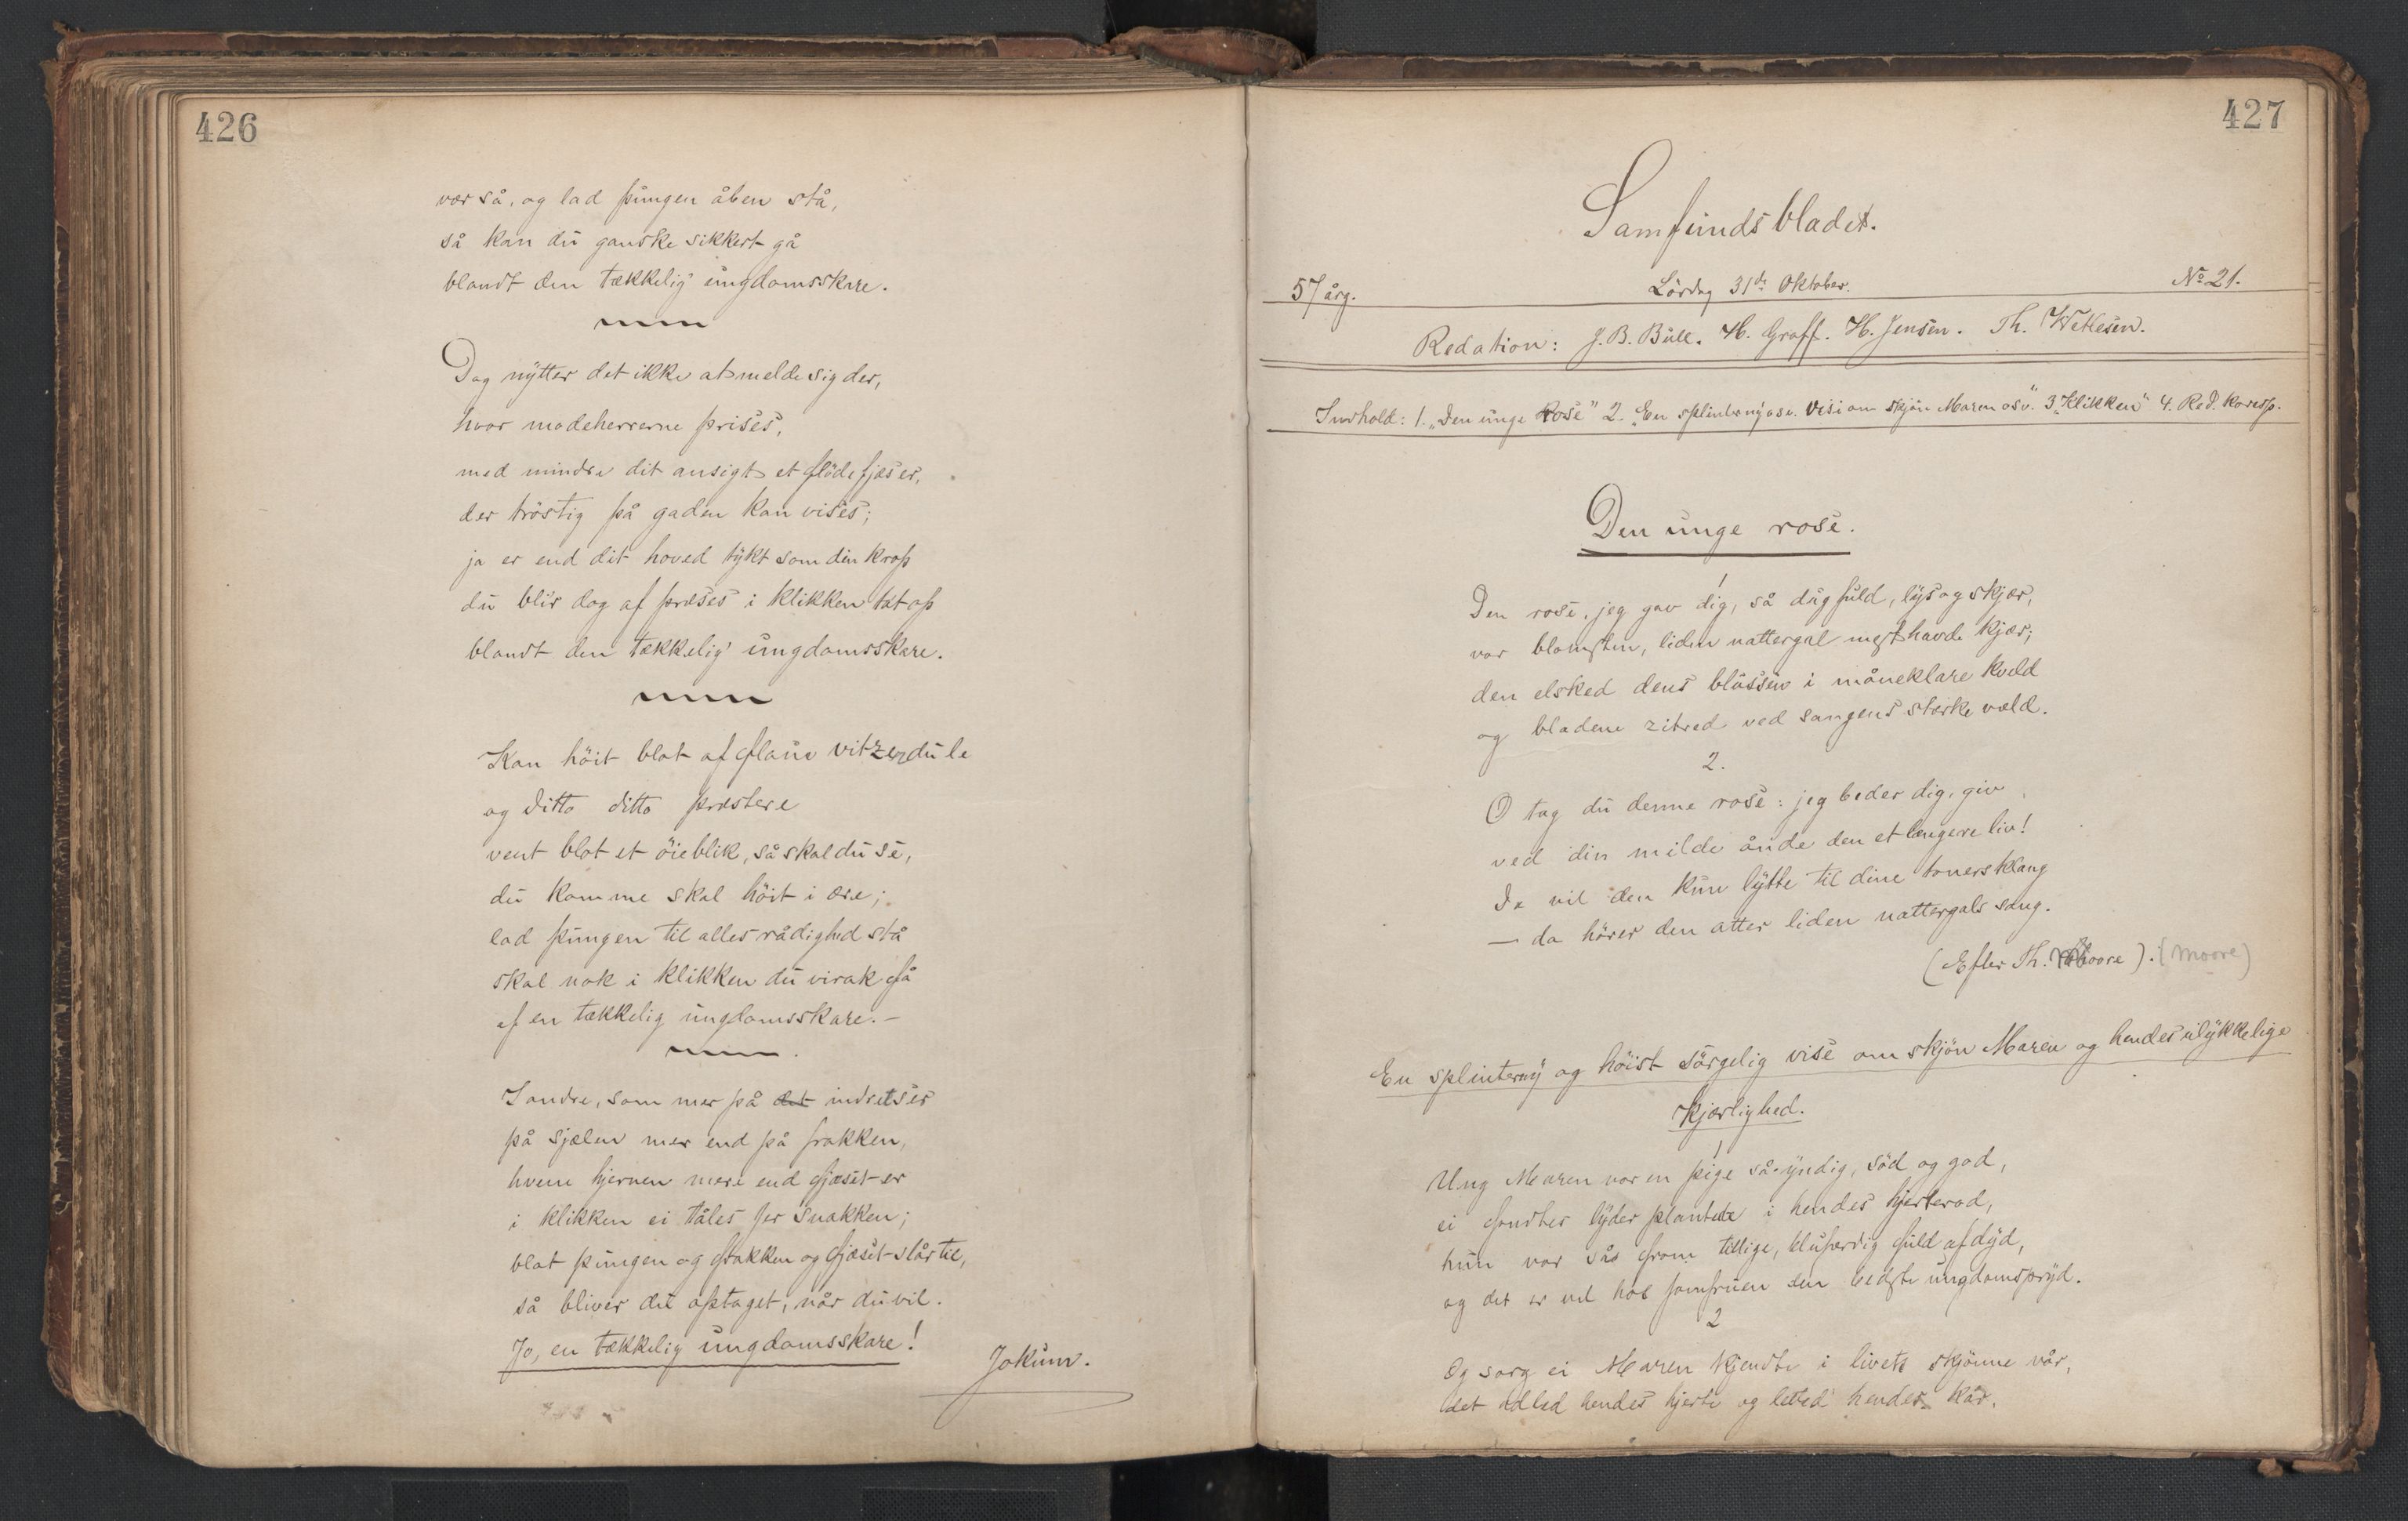 426
vær så, og lad pungen åben stå,
så kan du ganske sikkert gå
blandt den tækkelig' ungdomsskare.
Dog nytter det ikke at melde sig der,
hvor modeherrerne prises,
med mindre dit ansigt et flödefjæs er,
der tröstig på gaden kan vises;
ja er end dit hoved tykt som din krop
du blir dog af præses i klikken tat op
blandt den tækkelig' ungdomsskare.
Kan höit blot af flaue vitzer du le
og ditto ditto præstere
vent blot et öieblik, så skal du se,
du komme skal höit i ære;
lad pungen til alles rådighed stå
skal nok i klikken du virak få
af en tækkelig ungdomsskare. —
I andre, som mer på det indre ser
på sjælen mer end på frakken,
hvem hjernen mere end fjæset er
i klikken ei tåles for snakken;
blot pungen og frakken og fjæset slår til,
så bliver du optaget, når du vil.
Jo, en tækkelig ungdomsskare!
Jokum.
427
Samfundsbladet.
57 årg. Lördag 31de Oktober. No 21.
Redation: J. B. Bull. H. Graff. H. Jensen. Th. Wetlesen.
Indhold: 1. „Den unge Rose" 2. „En splinterny osv. visi om skjön Maren osv." 3 „Klikken" 4. Red. Koresp.
Den unge rose.
1
Den rose, jeg gav dig, så dugfuld, lys og skjær,
var blomsten, liden nattergal mest havde kjær;
den elsked dens blussen i måneklare kveld
og bladene zitred ved sangens stærke væld.
2.
O tag du denne rose: jeg beder dig, giv
ved din milde ånde den et længere liv!
Da vil den kun lytte til dine toners klang
— da hörer den atter liden nattergals sang.
(Efter Th. Moore). (Moore)
En splinterny og höist sörgelig vise om skjön Maren og hendes ulykkelige
Kjærlighed.
1
Ung Maren var en pige så yndig, söd og god,
ei fandtes lyder plantede i hendes hjerterod,
hun var så from tillige, blufærdig fuld af dyd,
og det er vel hos jomfruen den bedste ungdomspryd.
2
Og sorg ei Maren kjendte i livets skjönne vår,
det adled hendes hjerte og letted hendes kår.